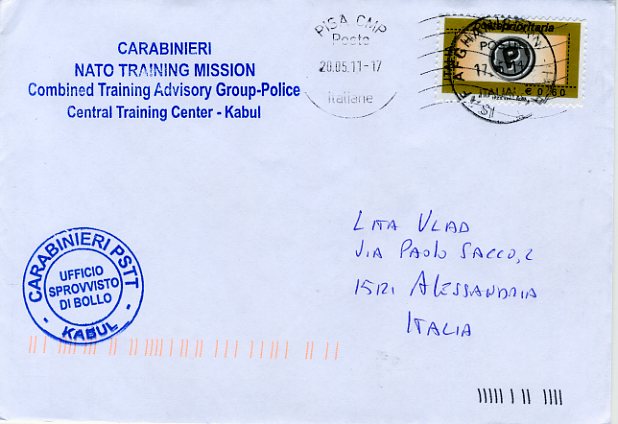 CARABINIERI
NATO TRAINING MISSION
Combined Training Advisory Group-Police
Central Training Center - Kabul
PISA CMP
Poste
20.05.11-17
Italiane
postaprioritaria
P
ITALIA
€ 0,60
AFGHAN
LITA VLAD
VIA PAOLO SACCO, 2
15121 ALESSANDRIA
ITALIA
CARABINIERI PSTT
UFFICIO
SPROVVISTO
DI BOLLO
- KABUL -